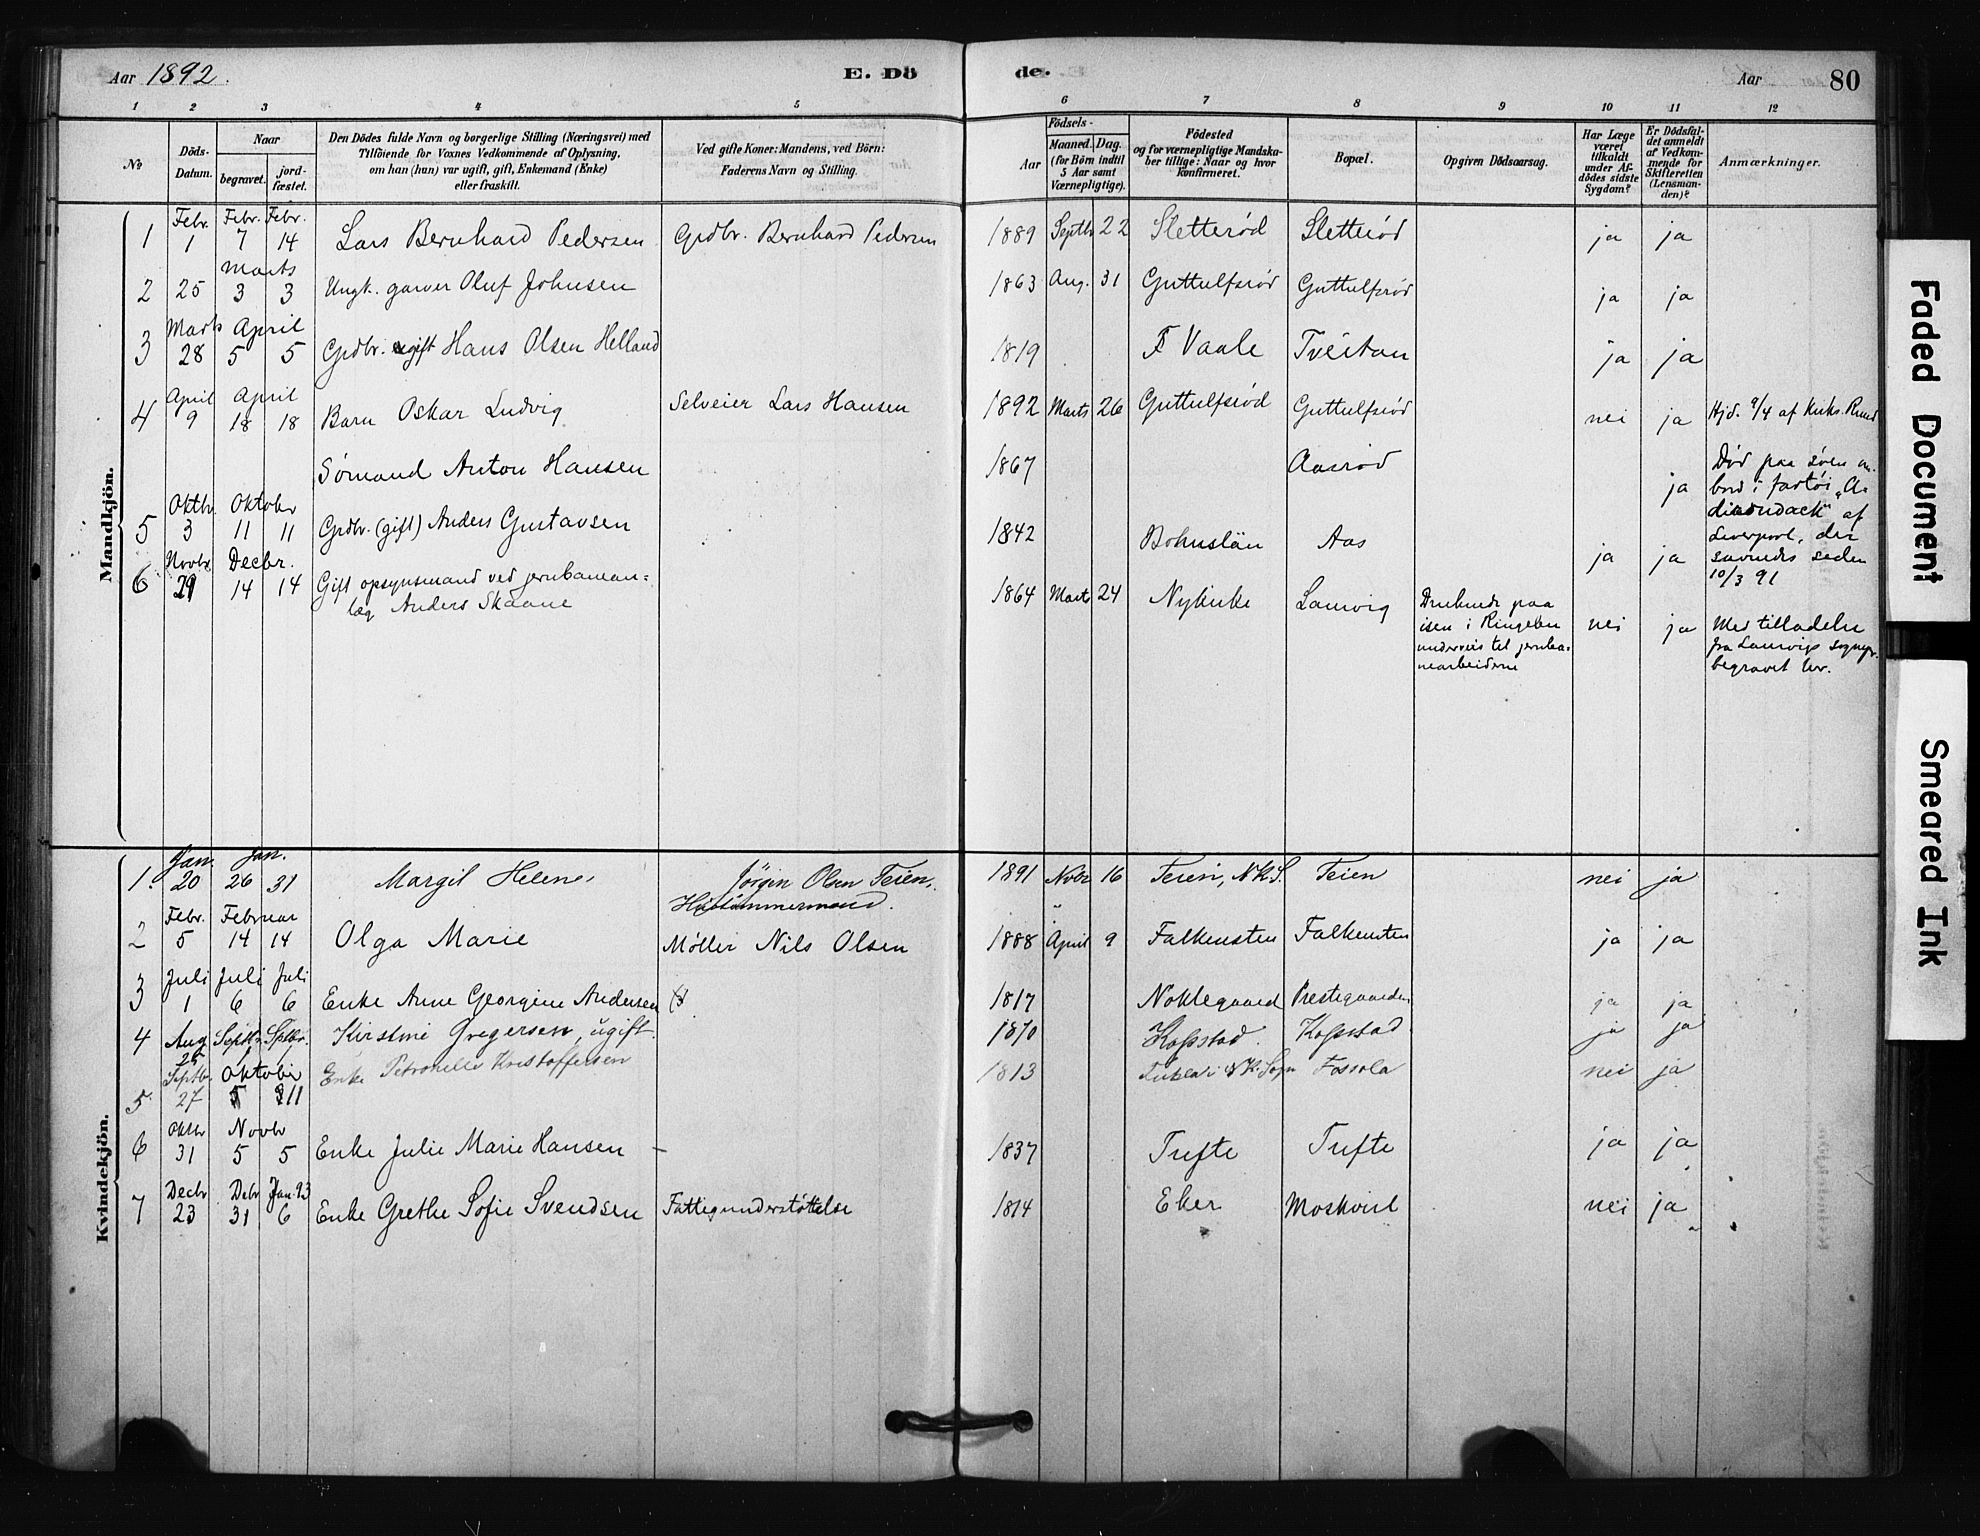 Aar 1892.
E. Dö
de.
Aar
80
1 2 3 4 5 6 7 8 9 10 11 12
No
Döds-Datum.
Naar
begravet.
jord-fæstet.
Den Dödes fulde Navn og borgerlige Stilling (Næringsvei) med
Tilföiende for Voxnes Vedkommende af Oplysning,
om han (hun) var ugift, gift, Enkemand (Enke)
eller fraskilt.
Ved gifte Koner: Mandens, ved Börn:
Faderens Navn og Stilling.
Födsels-
Aar
Maaned. Dag.
(for Börn indtil
5 Aar samt
Værnepligtige).
Födested
og for værnepligtige Mandska-
ber tillige: Naar og hvor
konfirmeret.
Bopæl.
Opgiven Dödsaarsag.
Har Læge
været
tilkaldt
under Af-
dödes sidste
Sygdom?
Er Dödsfal-
det anmeldt
af Vedkom-
mende for
Skifteretten
(Lensman-
den)?
Anmærkninger.
Mandkjön.
1 Febr. 1 Febr. 7 Febr. 14 Lars Bernhard Pedersen Grdbr. Bernhard Pedersen 1889 Septbr 22 Sletterød Sletterød ja ja
2 25 Marts 3 3 Ungk. garver Oluf Johnsen 1863 Aug. 31 Guttulfsrød Guttulfsrød ja ja
3 Marts 28 April 5 5 Grdbr. gift Hans Olsen Helland 1819 Vaale Tveitan ja ja
4 April 9 April 18 18 Barn Oskar Ludvig Selveier Lars Hansen 1892 Marts 26 Guttulfsrød Guttulfsrød nei ja Hjd. 9/4 af Kirks. Ruud
Sømand Anton Hansen 1867 Aasrød ja Død paa søen om-
bord i fartøi
af
Liverpool, der
savnedes siden
10/3 91
5 Oktbr. 3 Oktober 11 11 Grdbr. (gift) Anders Gustavsen 1842 Bohuslän Aas ja ja
6 Novbr 29 Decbr. 14 14 Gift opsynsmand ved jernbanean=
læg Anders Skaane 1864 Marts 24 Nykirke Laurvig Druknede paa
isen i Ringebu
underveis til jernba-
nearbeiderne nei ja Med tilladelse
fra Laurvigs sognepr.
begravet her.
Kvindekjön.
1. Jan. 20 Jan. 26 31 Margit Helene, Jörgen Olsen Teien,
Hustømmermand. 1891 Novbr 16 Teien, N.K.S. Teien nei ja
2 Febr. 5 Februar 14 14 Olga Marie Møller Nils Olsen 1888 April 9 Falkensten Falkensten ja ja
3 Juli 1 Juli 6 Juli 6 Enke Anne Georgine Andersen 1817 Noklegaard Prestegaarden ja ja
4 Aug 25 Septbr. Septbr. Kirstine Gregersen, ugift. 1870 Kopstad. Kopstad ja ja
5 Septbr. 27 Oktober 11 Enke Petronelle Kristoffersen 1813 i N.K. Sogn Fossola nei ja
6 Oktbr 31 Novbr 5 5 Enke Julie Marie Hansen – 1837 Tufte Tufte ja ja
7 Decbr 23 Debr 31 Jan. 93 6 Enke Grethe Sofie Svendsen Fattigunderstøttelse 1814 Eker Moskvist nei ja
Faded Document
Smeared Ink